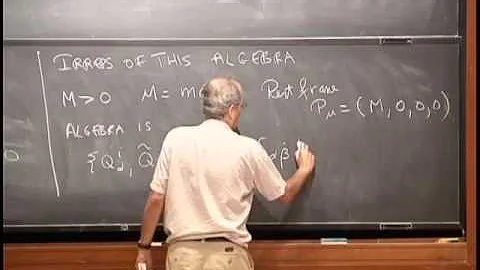 IRREPS OF THIS ALGEBRA
M>0 M = m Rest frame
Pμ = (M, 0, 0, 0)
ALGEBRA IS
{Q^i_α, Q̃ α β̇
0